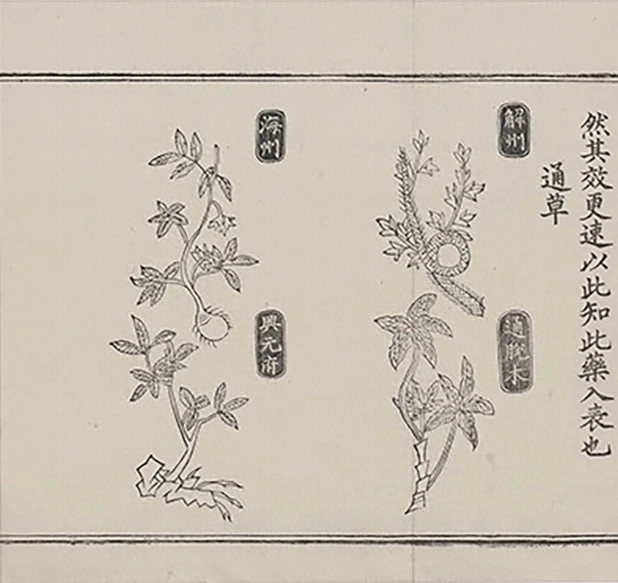 然其效更速以此知此藥入衰也
通草
解州
通脫木
海州
興元府